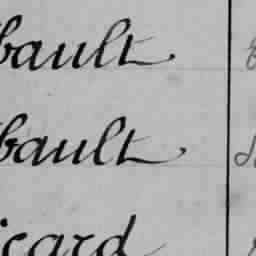 bault
bault
icard